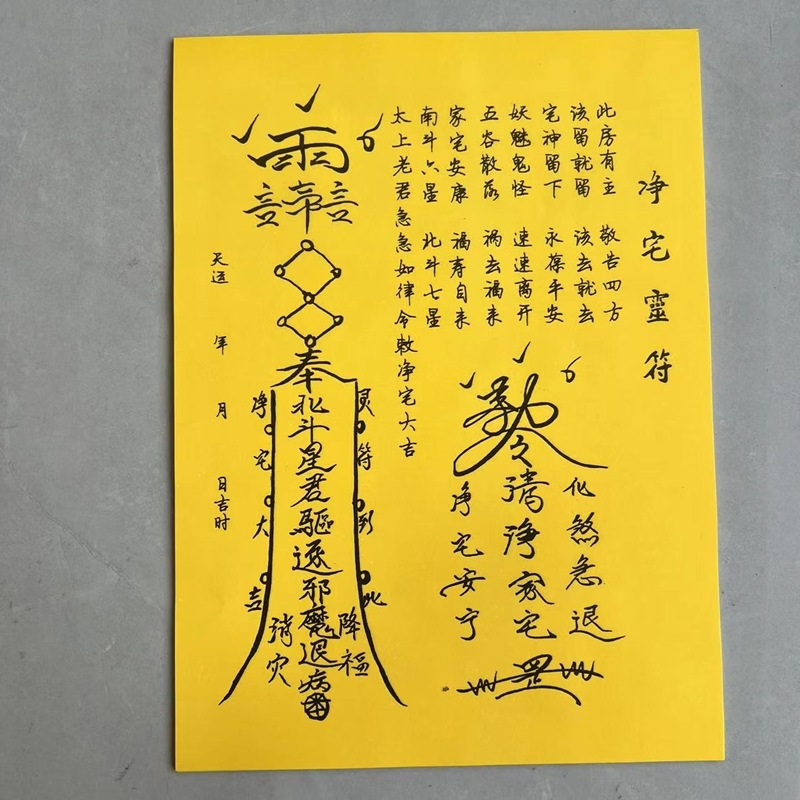 净宅靈符
此房有主 敬告四方
该留就留 该去就去
宅神留下 永葆平安
妖魅鬼怪 速速离开
五谷散落 祸去福来
家宅安康 福寿自来
南斗六星 北斗七星
太上老君急急如律令敕净宅大吉
化煞急退
令清净家宅
净宅安宁
灵符到此
降福
奉北斗星君驅逐邪魔退病
消灾
净宅大吉
天运 年 月 日吉时